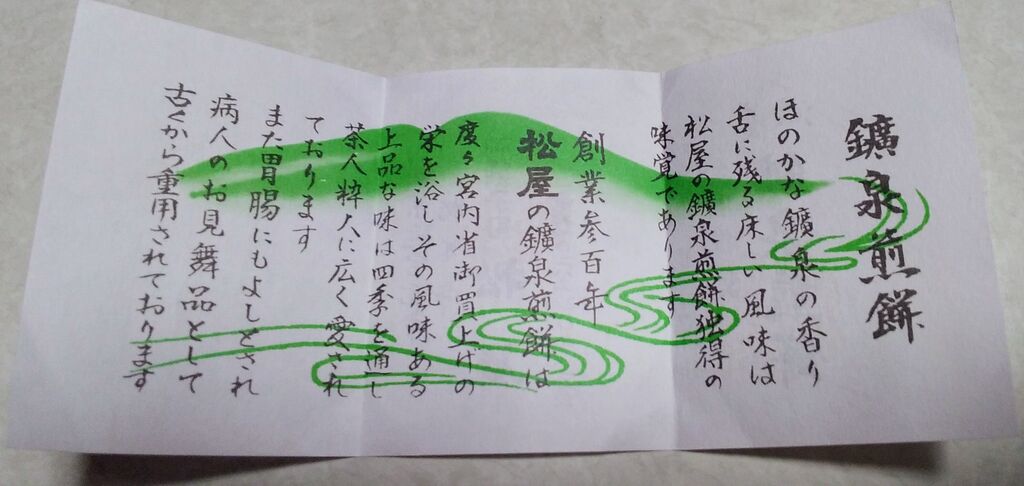 鑛泉煎餅
ほのかな鑛泉の香り
舌に残る床しい風味は
松屋の鑛泉煎餅独得の
味覚であります
創業参百年
松屋の鑛泉煎餅は
度々宮内省御買上げの
栄を浴しその風味ある
上品な味は四季を通し
茶人粋人に広く愛され
ております
また胃腸にもよしとされ
病人のお見舞品として
古くから重用されております